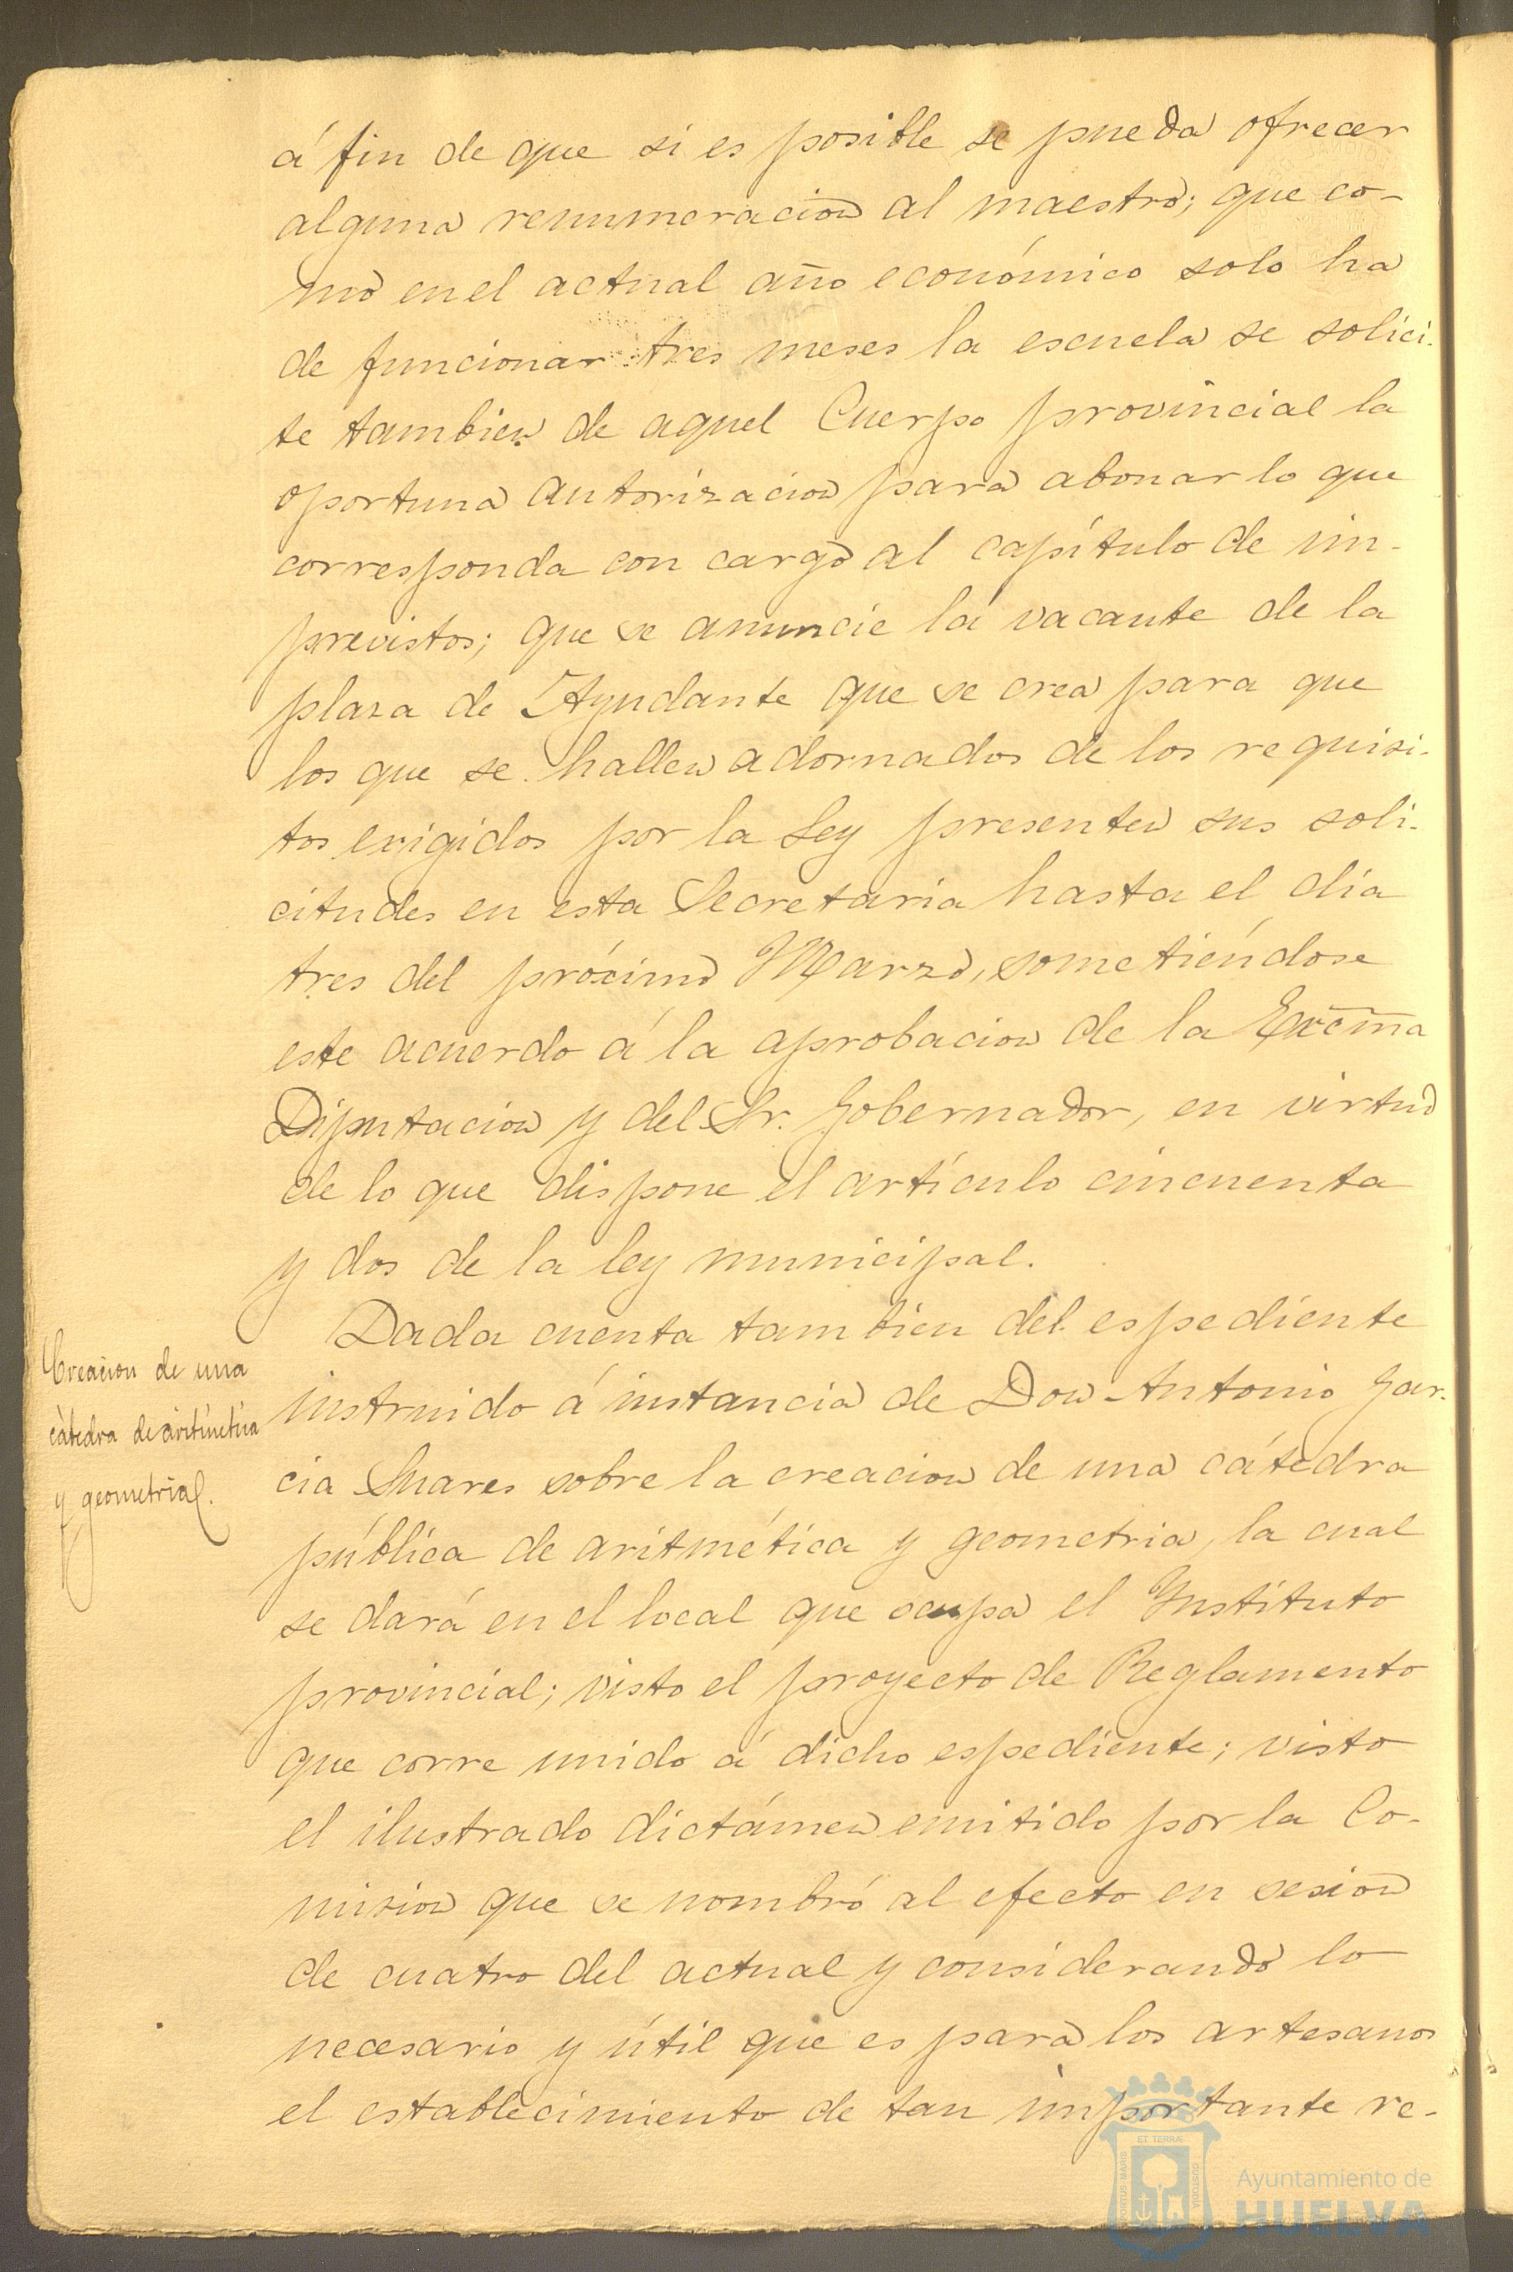 á fin de que si es posible se pueda ofrecer
alguna renumeracion al maestro; que co-
mo en el actual año económico solo ha
de funcionar tres meses la escuela se solici-
te tambien de aquel Cuerpo provincial la
oportuna autorizacion para abonar lo que
corresponda con cargo al capítulo de im-
previstos; que se anuncie la vacante de la
plaza de Ayudante que se crea para que
los que se hallen adornados de los requisi-
tos exigidos por la Ley presenten sus soli-
citudes en esta Secretaria hasta el dia
tres del próximo Marzo, sometiéndose
este acuerdo á la aprobacion de la Excma
Diputacion y del Sr. Gobernador, en virtud
de lo que dispone el artículo cincuenta
y dos de la ley municipal.
Creacion de una
cátedra de aritmética
y geometria.
Dada cuenta tambien del espediente
instruido á instancia de Don Antonio Gar-
cia Suares sobre la creacion de una cátedra
pública de aritmética y geometria, la cual
se dará en el local que ocupa el Instituto
provincial; visto el proyecto de Reglamento
que corre unido á dicho espediente; visto
el ilustrado dictámen emitido por la Co-
mision que se nombró al efecto en sesion
de cuatro del actual y considerando lo
necesario y útil que es para los artesanos
el establecimiento de tan importante re-
ET TERRÆ
PORTUS MARIS
CUSTODIA
Ayuntamiento de
HUELVA